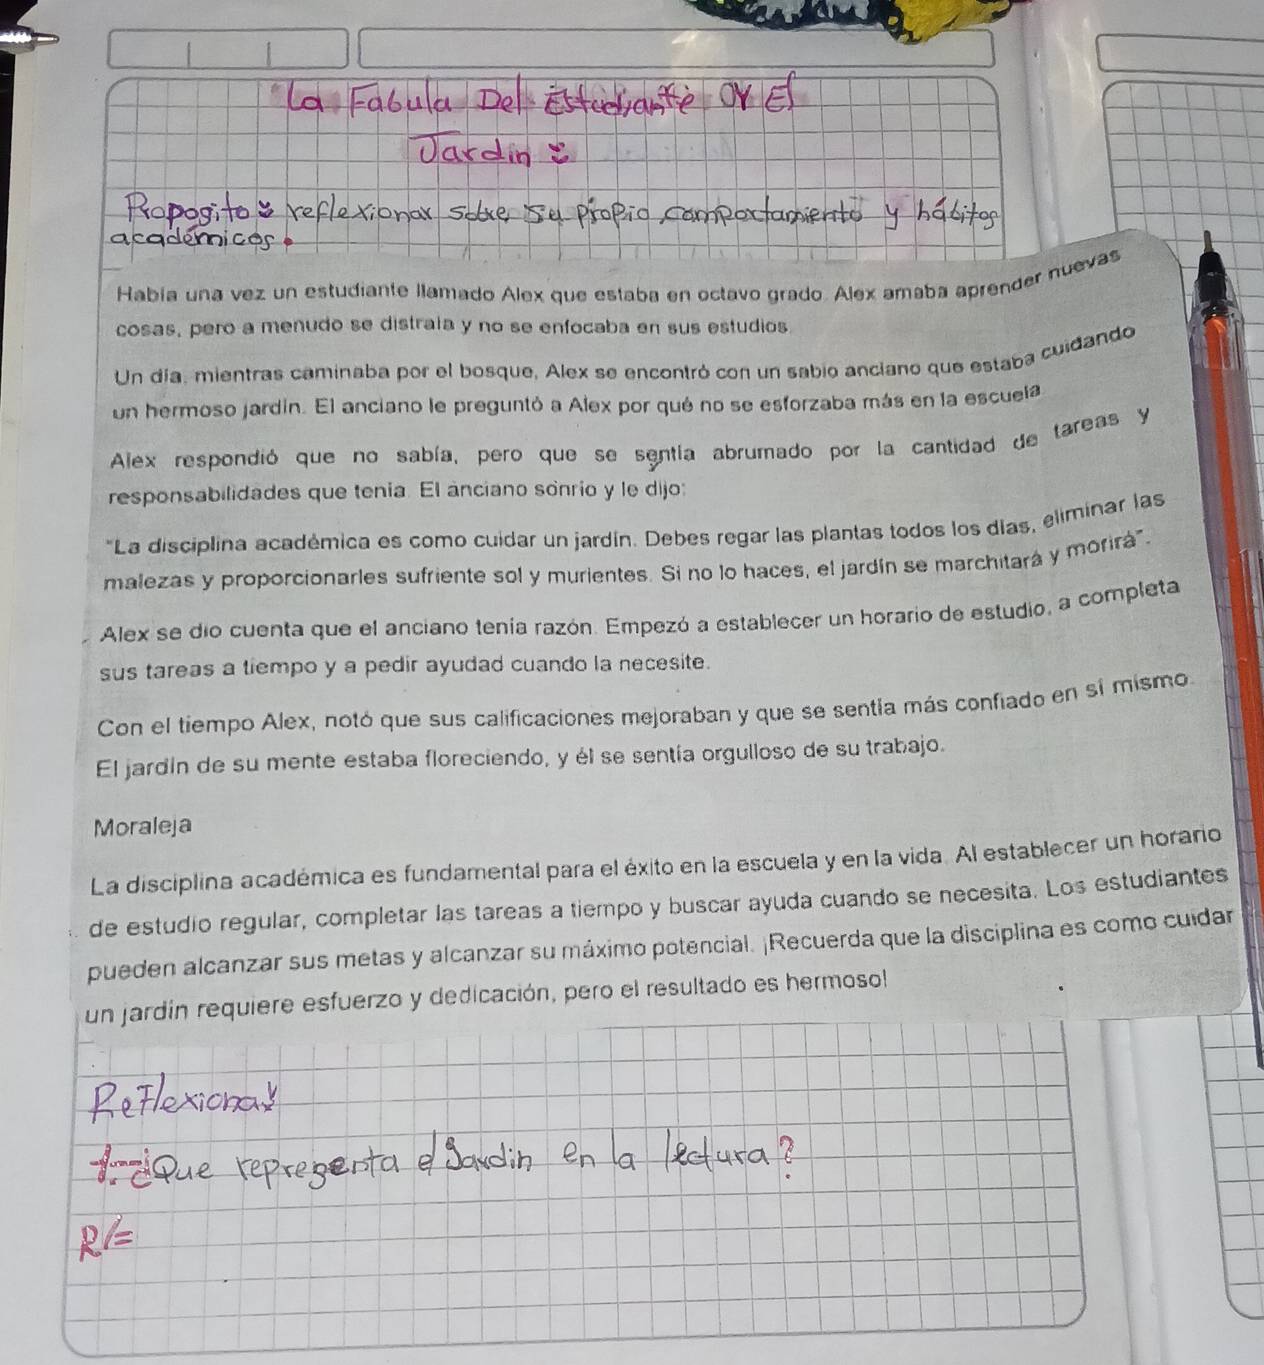 La Fabula Del Estudiante OY El
Jardin:
Propogito: reflexionar sobre su propio comportamiento y hábitos
académicos.
Había una vez un estudiante llamado Alex que estaba en octavo grado. Alex amaba aprender nuevas
cosas, pero a menudo se distraía y no se enfocaba en sus estudios
Un día, mientras caminaba por el bosque, Alex se encontró con un sabio anciano que estaba cuidando
un hermoso jardín. El anciano le preguntó a Alex por qué no se esforzaba más en la escuela
Alex respondió que no sabía, pero que se sentía abrumado por la cantidad de tareas y
responsabilidades que tenía. El anciano sonrío y le dijo:
"La disciplina académica es como cuidar un jardín. Debes regar las plantas todos los días, eliminar las
malezas y proporcionarles sufriente sol y murientes. Si no lo haces, el jardín se marchitará y morirá".
Alex se dio cuenta que el anciano tenía razón. Empezó a establecer un horario de estudio, a completa
sus tareas a tiempo y a pedir ayudad cuando la necesite.
Con el tiempo Alex, notó que sus calificaciones mejoraban y que se sentía más confiado en sí mismo.
El jardín de su mente estaba floreciendo, y él se sentía orgulloso de su trabajo.
Moraleja
La disciplina académica es fundamental para el éxito en la escuela y en la vida. Al establecer un horario
de estudio regular, completar las tareas a tiempo y buscar ayuda cuando se necesita. Los estudiantes
pueden alcanzar sus metas y alcanzar su máximo potencial. ¡Recuerda que la disciplina es como cuidar
un jardín requiere esfuerzo y dedicación, pero el resultado es hermoso!
Reflexiona:
1.-¿Que representa el Jardin en la lectura?
R/=